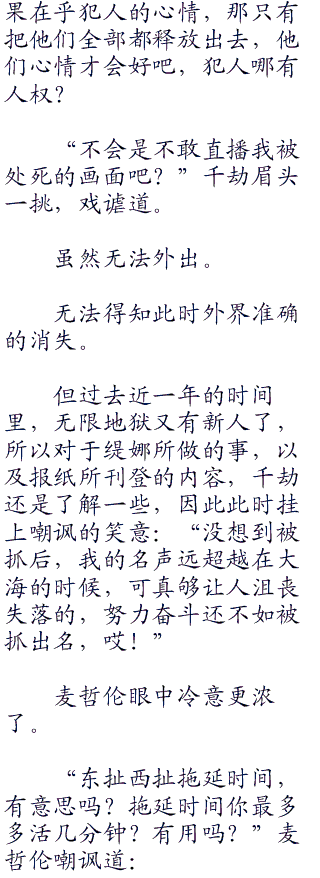 果在乎犯人的心情，那只有
把他们全部都释放出去，他
们心情才会好吧，犯人哪有
人权？
“不会是不敢直播我被
处死的画面吧？”千劫眉头
一挑，戏谑道。
虽然无法外出。
无法得知此时外界准确
的消失。
但过去近一年的时间
里，无限地狱又有新人了，
所以对于缇娜所做的事，以
及报纸所刊登的内容，千劫
还是了解一些，因此此时挂
上嘲讽的笑意：“没想到被
抓后，我的名声远超越在大
海的时候，可真够让人沮丧
失落的，努力奋斗还不如被
抓出名，哎！”
麦哲伦眼中冷意更浓
了。
“东扯西扯拖延时间，
有意思吗？拖延时间你最多
多活几分钟？有用吗？”麦
哲伦嘲讽道：